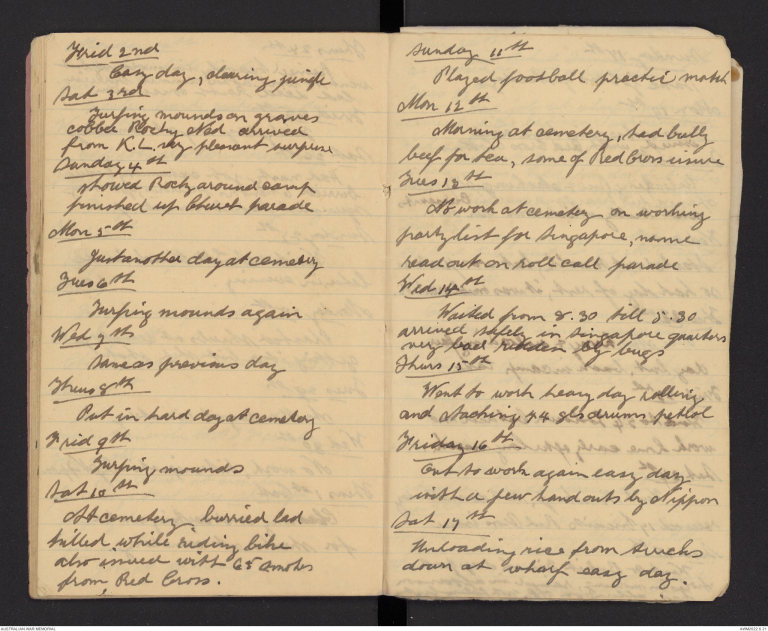 Frid 2nd
Easy day, clearing jungle
Sat 3rd
Turfing mounds on graves
cobber Rocky Ned arrived
from K.L. very pleasant surprise
Sunday 4th
showed Rocky around camp
finished up Church parade
Mon 5th
Just another day at cemetery
Tues 6th
Turfing mounds again
Wed 7th
Same as previous day
Thurs 8th
Put in hard day at cemetery
Frid 9th
Turfing mounds
Sat 10th
At cemetery, burried lad
killed while riding bike
also issued with 65 smokes
from Red Cross.
Sunday 11th
Played football practice match
Mon 12th
Morning at cemetery, had bully
beef for tea, some of Red Cross issue
Tues 13th
At work at cemetery on working
party list for Singapore, name
read out on roll call parade
Wed 14th
Waited from 8.30 till 5.30
arrived safely in Singapore quarters
very bad ridden by bugs
Thurs 15th
Went to work heavy day rolling
and stacking 44 gls drums petrol
Friday 16th
Out to work again easy day
with a few handouts by Nippon
Sat 17th
Unloading rice from trucks
down at wharf easy day.
AUSTRALIAN WAR MEMORIAL